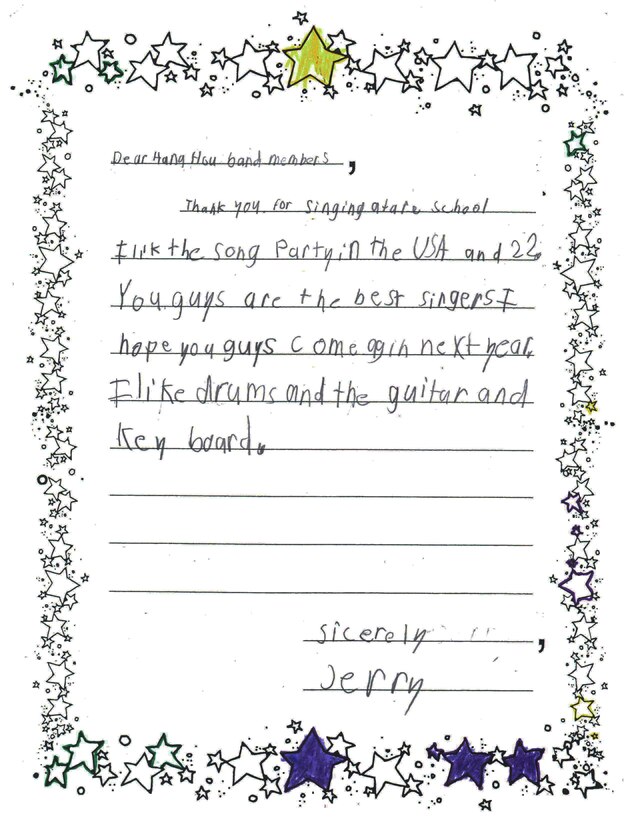 Dear Hang Hou band members,
Thank you for singing at are school
I lik the song Party in the USA and 22
You guys are the best singers I
hope you guys come agin next year.
I like drums and the guitar and
Key board.
sicerely,
Jerry